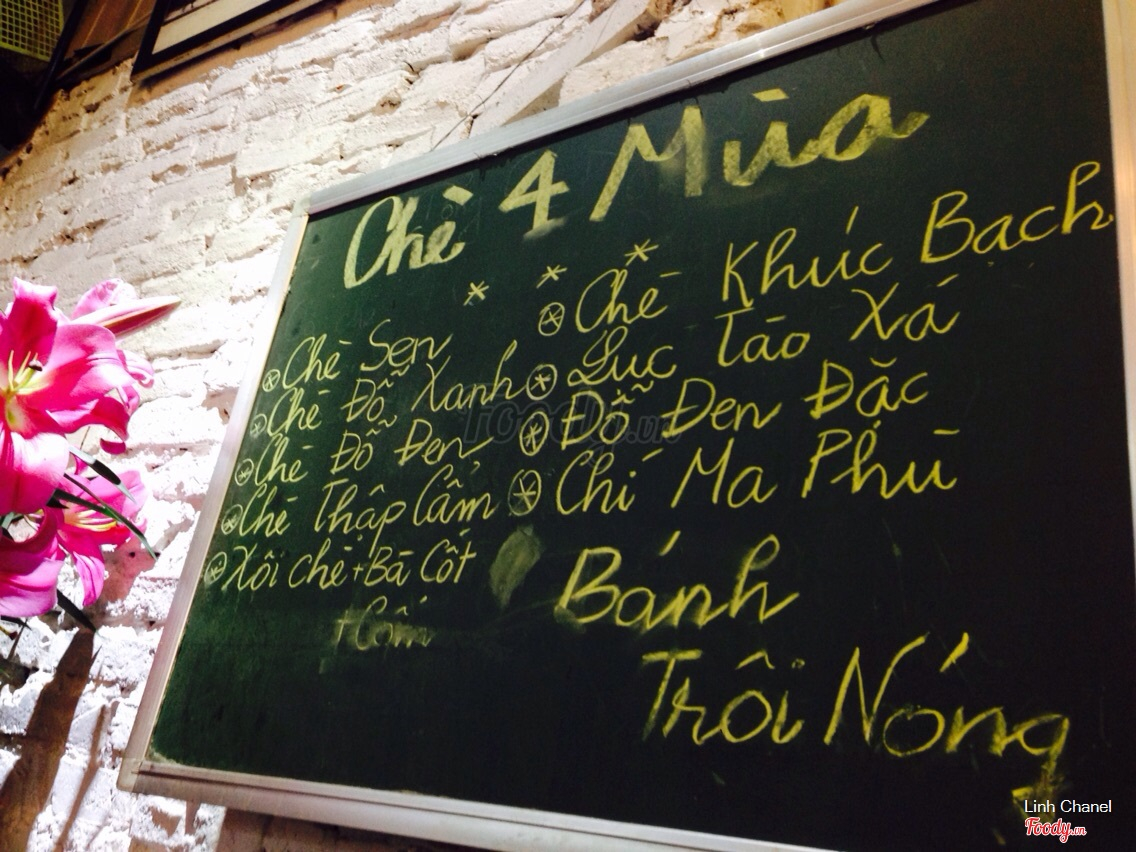 Chè 4 Mùa
* * *
Chè Sen
Chè Đỗ Xanh
Chè Đỗ Đen
Chè Thập Cẩm
Xôi Chè + Bà Cốt
+ Cốm
Chè Khúc Bạch
Lục Tào Xá
Đỗ Đen Đặc
Chí Ma Phù
Bánh
Trôi Nóng
Foody.vn
Linh Chanel
Foody.vn